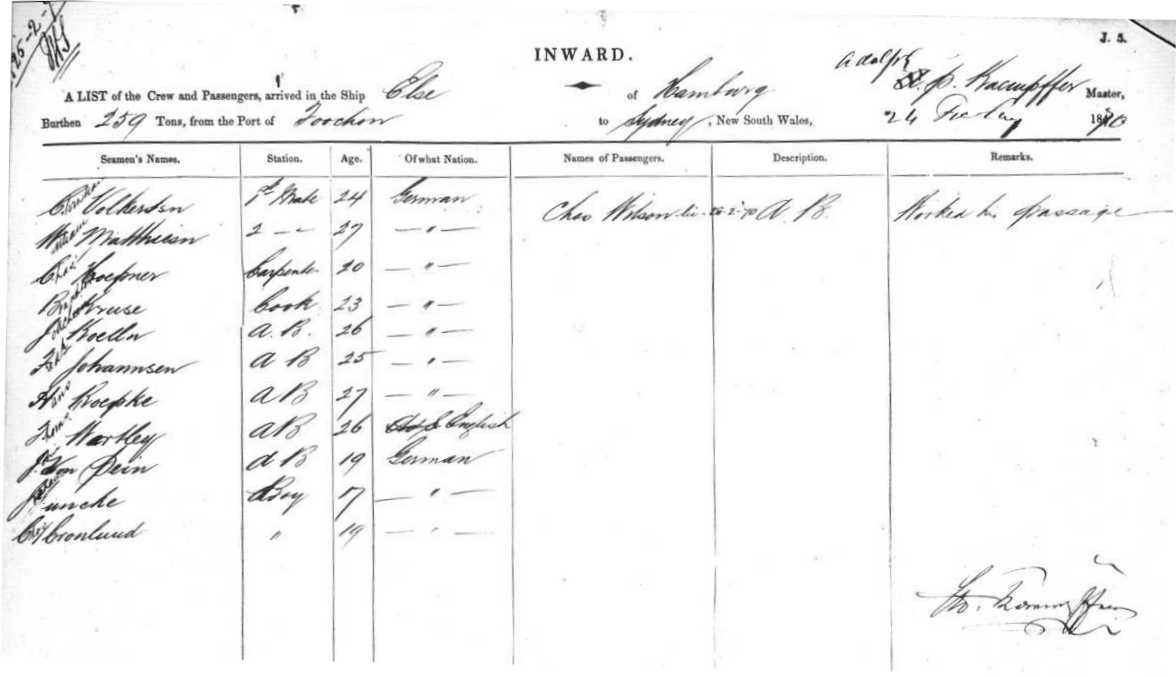 25-2-7
J. 5.
INWARD.
Adolph
A LIST of the Crew and Passengers, arrived in the Ship Else of Hamburg P. Kaempffer Master,
Burthen 259 Tons, from the Port of Foochow to Sydney, New South Wales, 24 Feby 1870
Seamen's Names. Station. Age. Of what Nation. Names of Passengers. Description. Remarks.
Volkertsen 1st Mate 24 German Chas Wilson 25-2-70 A. B. Worked his passage
William Matthiesn 2 -- 27 — " —
Chas Hoepner Carpenter 20 — " —
Kruse Cook 23 — " —
Joachim Koelln A. B. 26 — " —
Fred Johannsen A B 25 — " —
Hans Koepke A B 27 — " —
Thomas Wartley A B 26 English
J. Von Dein A B 19 German
Juncke Boy 17 — " —
Cronlund " 19 — " —
Kaempffer